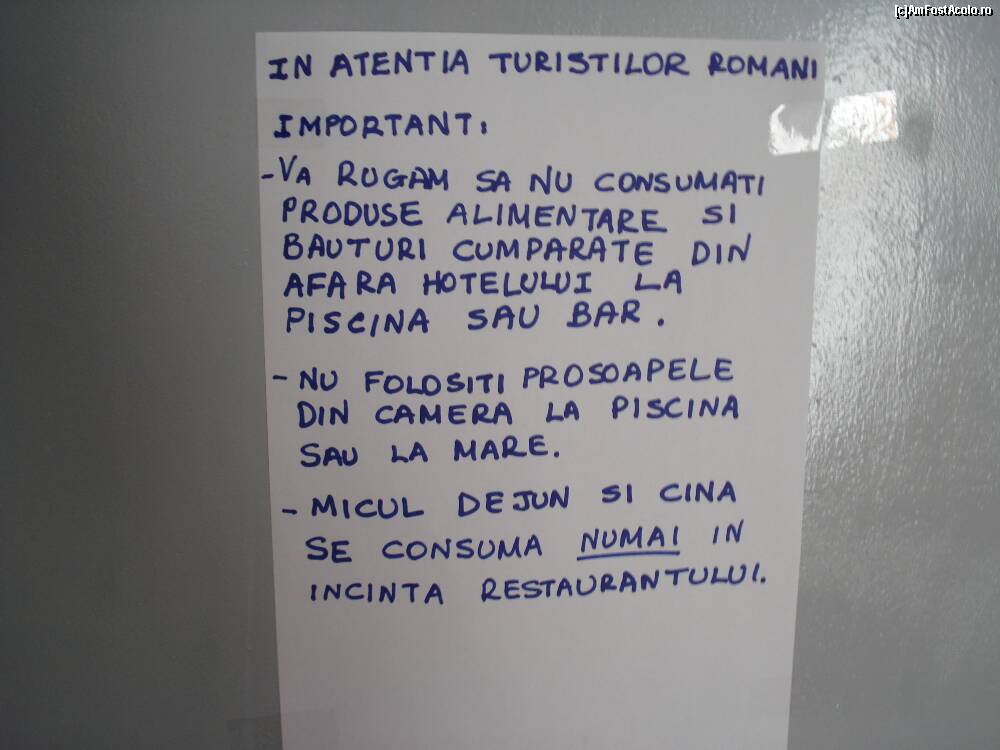 [c]AmFostAcolo.ro
IN ATENTIA TURISTILOR ROMANI
IMPORTANT:
-VA RUGAM SA NU CONSUMATI
PRODUSE ALIMENTARE SI
BAUTURI CUMPARATE DIN
AFARA HOTELULUI LA
PISCINA SAU BAR.
- NU FOLOSITI PROSOAPELE
DIN CAMERA LA PISCINA
SAU LA MARE.
- MICUL DEJUN SI CINA
SE CONSUMA NUMAI IN
INCINTA RESTAURANTULUI.